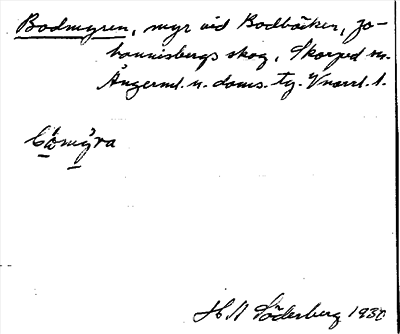 Bodmyren, myr vid Bodbäcken, Jo-
hannisbergs skog, Skorped sn.
Ångerml. n. doms. tg. Vnorrl. l.
H M Söderberg 1930